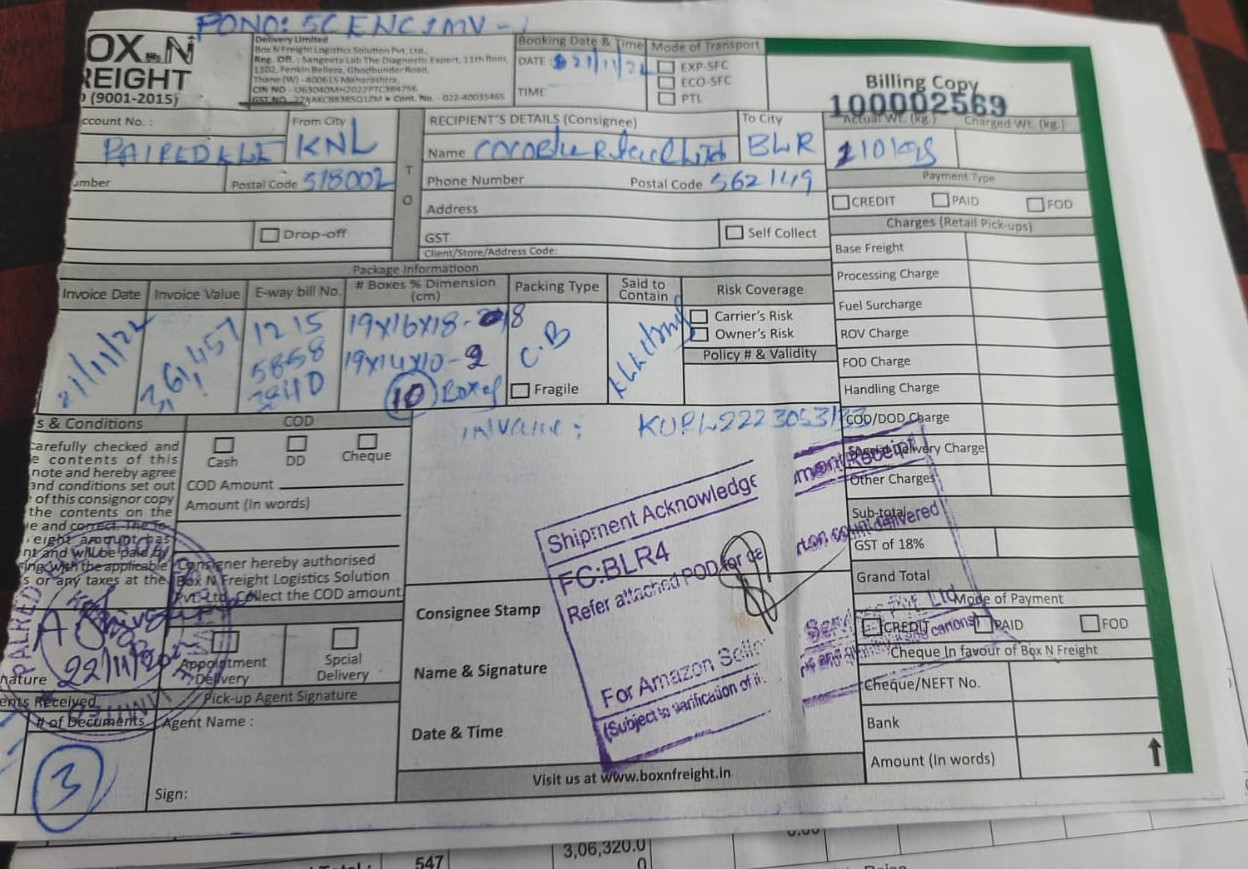 PONO: 5CENC1MV -
OX N
REIGHT
(9001-2015)
Delivery Limited
Box N Freight Logistics Solution Pvt. Ltd.,
Reg. Off.: Sangeeta Lab The Diagnostic Expert, 11th floor,
1102, Penkin Bellera, Ghodbunder Road,
Thane (W) - 400615 Maharashtra,
CIN NO - U63040MH2022PTC384756
GST NO. Cont. No. - 022-40035465
Booking Date & Time
DATE 21/11/22
TIME
Mode of Transport
EXP-SFC
ECO-SFC
PTL
Billing Copy
100002569
ccount No. :
From City
KNL
umber
Postal Code 518002
Drop-off
T
O
RECIPIENT'S DETAILS (Consignee)
Name
To City
BLR
Phone Number
Postal Code 562149
Address
GST
Self Collect
Client/Store/Address Code:
Actual Wt. (kg.)
Charged Wt. (kg.)
210kgs
Payment Type
CREDIT
PAID
FOD
Charges (Retail Pick-ups)
Base Freight
Processing Charge
Fuel Surcharge
ROV Charge
FOD Charge
Handling Charge
COD/DOD Charge
Special Delivery Charge
Other Charges
Sub-total
GST of 18%
Grand Total
Package Informatioon
Invoice Date
Invoice Value
E-way bill No.
# Boxes % Dimension (cm)
Packing Type
Said to Contain
Risk Coverage
21/11/22
3,61,457
1215
5858
3840
19x16x18-8
19x14x10-2
10 Boxes
C.B
Fragile
Carrier's Risk
Owner's Risk
Policy # & Validity
Invoice: KUPL2223053133
s & Conditions
carefully checked and
e contents of this
note and hereby agree
and conditions set out
of this consignor copy
the contents on the
e and correct. The fo-
eight amount has
nt and will be paid by
ing with the applicable
s or any taxes at the
COD
Cash
DD
Cheque
COD Amount
Amount (In words)
Consigner hereby authorised
Box N Freight Logistics Solution
Pvt. Ltd. Collect the COD amount
PALRED
22/11/2022
nature
Appointment Delivery
Spcial Delivery
ents Received
# of Documents
3
Pick-up Agent Signature
Agent Name :
Sign:
Shipment Acknowledge
ment Receipt
FC:BLR4
Refer attached POD for ca
rton count delivered
For Amazon Selle
Serv
Pvt. Ltd
(Subject to varification of i
cartons)
Consignee Stamp
Name & Signature
Date & Time
Mode of Payment
CREDIT
PAID
FOD
Cheque In favour of Box N Freight
Cheque/NEFT No.
Bank
Amount (In words)
Visit us at www.boxnfreight.in
547
3,06,320.0
0
0.00